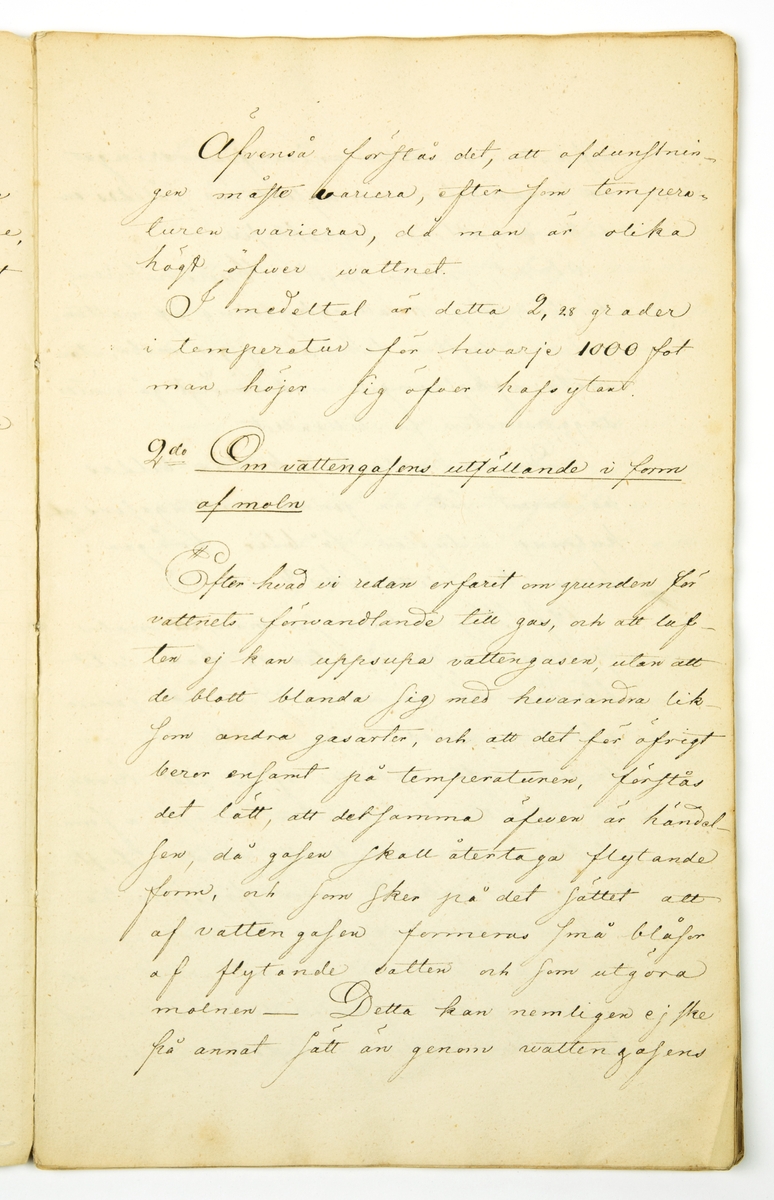 Äfvenså förstås det, att afdunstnin-
gen måste variera, efter som tempera-
turen varierar, då man är olika
högt öfwer wattnet.
I medeltal är detta 2,28 grader
i temperatur för hwarje 1000 fot
man höjer sig öfver hafsytan.
2do Om vattengasens utfällande i form
af moln
Efter hvad vi redan erfarit om grunden för
vattnets förwandlande till gas, och att luf-
ten ej kan uppsupa vattengasen, utan att
de blott blanda sig med hvarandra lik-
som andra gasarter, och att det för öfrigt
beror ensamt på temperaturen, förstås
det lätt, att detsamma äfven är händel-
sen, då gasen skall återtaga flytande
form, och som sker på det sättet att
af vattengasen formeras små blåsor
af flytande vatten och som utgöra
molnen — Detta kan nemligen ej ske
på annat sätt än genom wattengasens